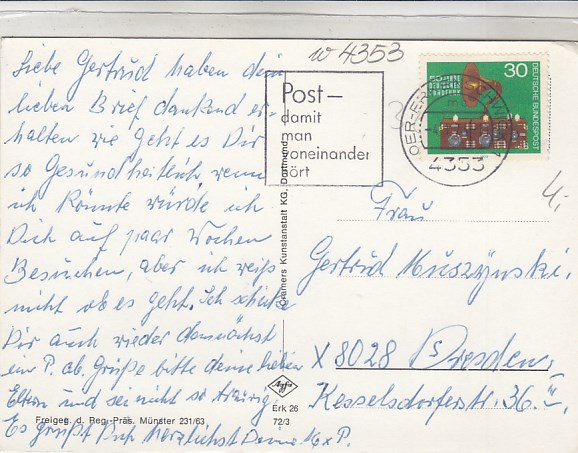 w 4353
Liebe Gertrud haben dein
lieben Brief dankend er-
halten wie geht es Dir
so Gesundheitlich wenn
ich könnte würde ich
Dich auf paar Wochen
Besuchen, aber ich weiß
nicht ob es geht. Ich schicke
Dir auch wieder demnächst
ein P. ab. Grüße bitte deine lieben
Eltern und sei nicht so traurig.
Es grüßt Dich herzlichst Deine M
Post—
damit
man
voneinander
hört
30
DEUTSCHE BUNDESPOST
OER-ER
4353
Frau
Gertrud Muszynski.
X 8028 Dresden,
Kesselsdorferstr. 36. II.
Cramers Kunstanstalt KG, Dortmund
Agfa
Erk 26
72/3
Freigeg. d. Reg.-Präs. Münster 231/63